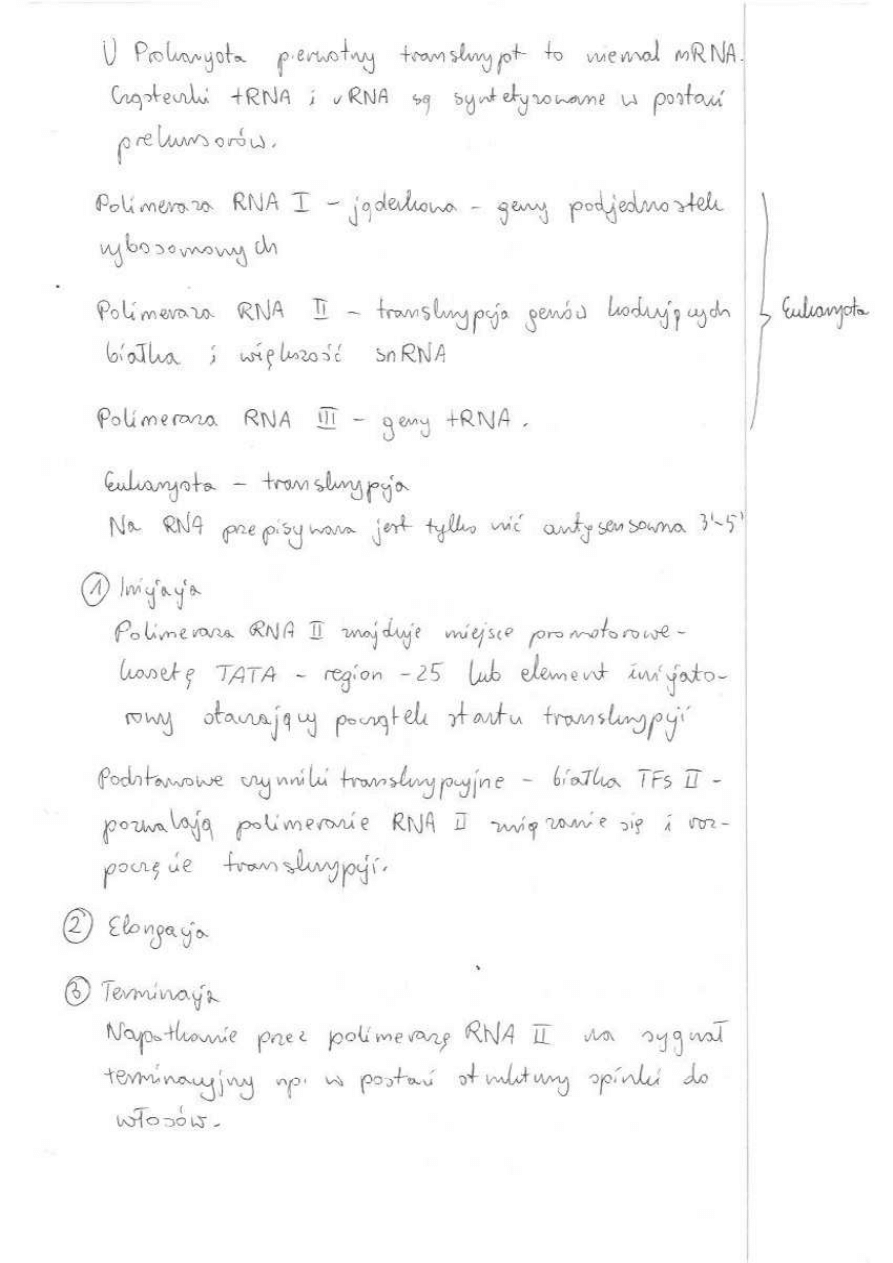 U Prokaryota pierwotny transkrypt to niemal mRNA.
Cząsteczki tRNA i rRNA są syntetyzowane w postaci
prekursorów.
Polimeraza RNA I – jąderkowa – geny podjednostek
rybosomowych
Polimeraza RNA II – transkrypcja genów kodujących
białka i większość snRNA
Eukaryota
Polimeraza RNA III – geny tRNA.
Eukaryota – transkrypcja
Na RNA przepisywana jest tylko nić antysensowna 3'-5'
① Inicjacja
Polimeraza RNA II znajduje miejsce promotorowe –
kasetę TATA – region -25 lub element inicjato-
rowy otaczający początek startu transkrypcji
Podstawowe czynniki transkrypcyjne – białka TFs II –
pozwalają polimerazie RNA II związanie się i roz-
poczęcie transkrypcji.
② Elongacja
③ Terminacja
Napotkanie przez polimerazę RNA II na sygnał
terminacyjny np. w postaci struktury spinki do
włosów.